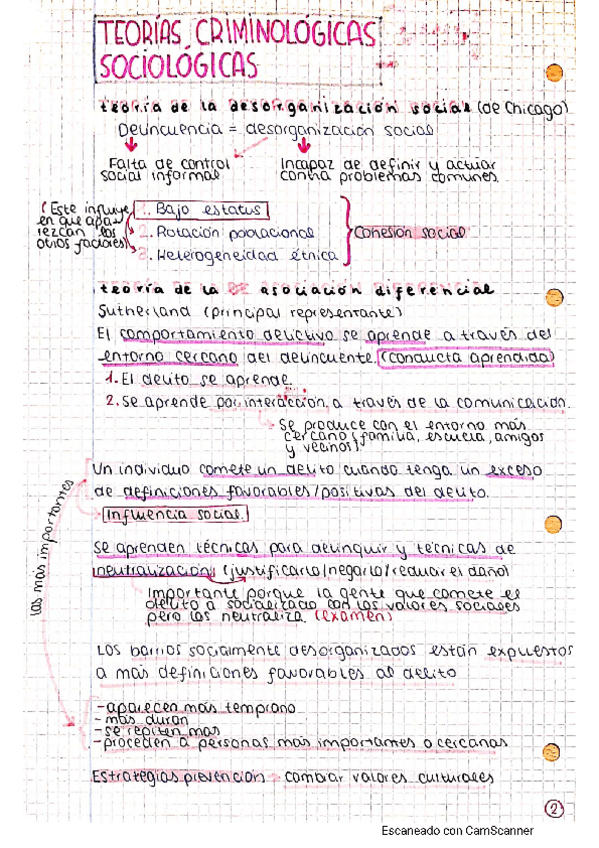 TEORÍAS CRIMINOLÓGICAS
SOCIOLÓGICAS
teoría de la desorganización social (de Chicago)
Delincuencia = desorganización social
Falta de control
social informal
Incapaz de definir y actuar
contra problemas comunes.
(Este influye
en que apa-
rezcan los
otros factores)
1. Bajo estatus
2. Rotación poblacional
3. Heterogeneidad étnica
Cohesión social
teoría de la asociación diferencial
Sutherland (principal representante)
El comportamiento delictivo se aprende a través del
entorno cercano del delincuente. (conducta aprendida)
1. El delito se aprende.
2. Se aprende por interacción, a través de la comunicación.
Se produce con el entorno más
cercano (familia, escuela, amigos
y vecinos).
Un individuo comete un delito cuando tenga un exceso
de definiciones favorables/positivas del delito.
Influencia social.
Se aprenden técnicas para delinquir y técnicas de
neutralización (justificarlo/negarlo/reducir el daño)
Importante porque la gente que comete el
delito a socializado con los valores sociales
pero los neutraliza. (examen)
las más importantes
Los barrios socialmente desorganizados están expuestos
a más definiciones favorables al delito
-aparecen más temprano
-más duran
-se repiten más
-proceden a personas más importantes o cercanas
Estrategias prevención → cambiar valores culturales
2
Escaneado con CamScanner